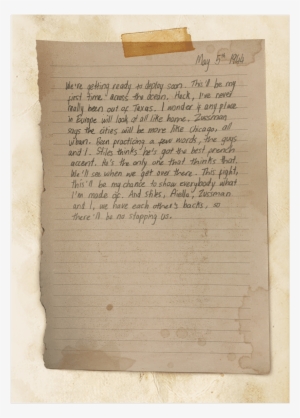 May 5th 1944
We're getting ready to deploy soon. This'll be my
first time across the ocean. Heck, I've never
really been out of Texas. I wonder if any place
in Europe will look at all like home. Zussman
says the cities will be more like Chicago, all
urban. Been practicing a few words, the guys
and I. Stiles thinks he's got the best French
accent. He's the only one that thinks that.
We'll see when we get over there. This fight,
this'll be my chance to show everybody what
I'm made of. And Stiles, Aiello, Zussman
and I, we have each other's backs, so
there'll be no stopping us.